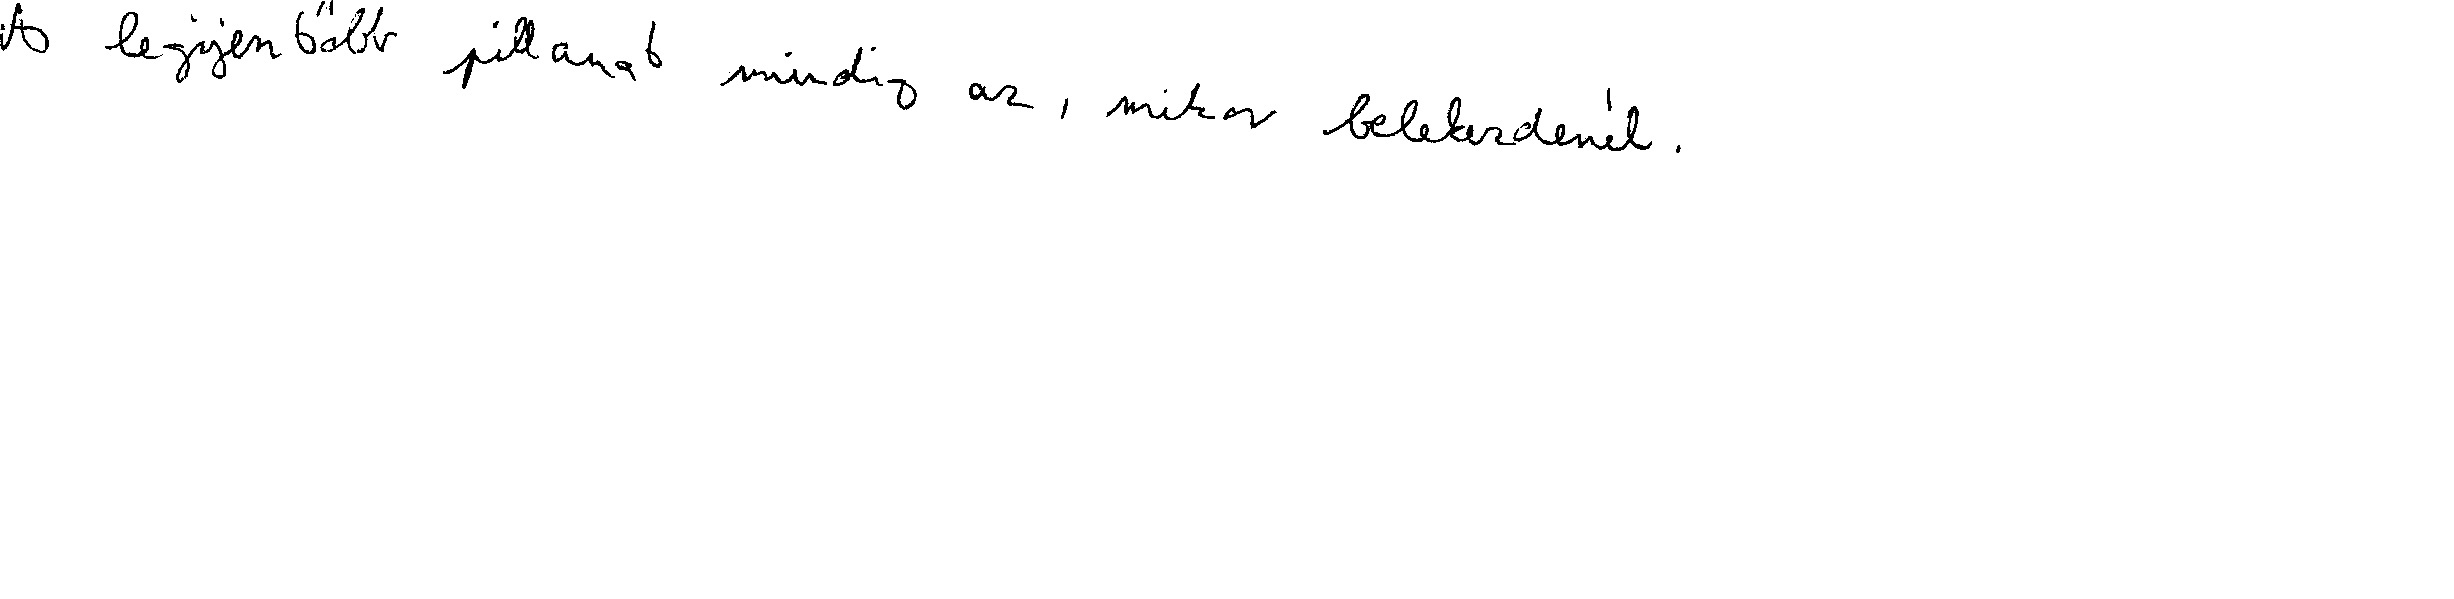 A legijjentőbb pillanat mindig az, mikor belekezdenél.